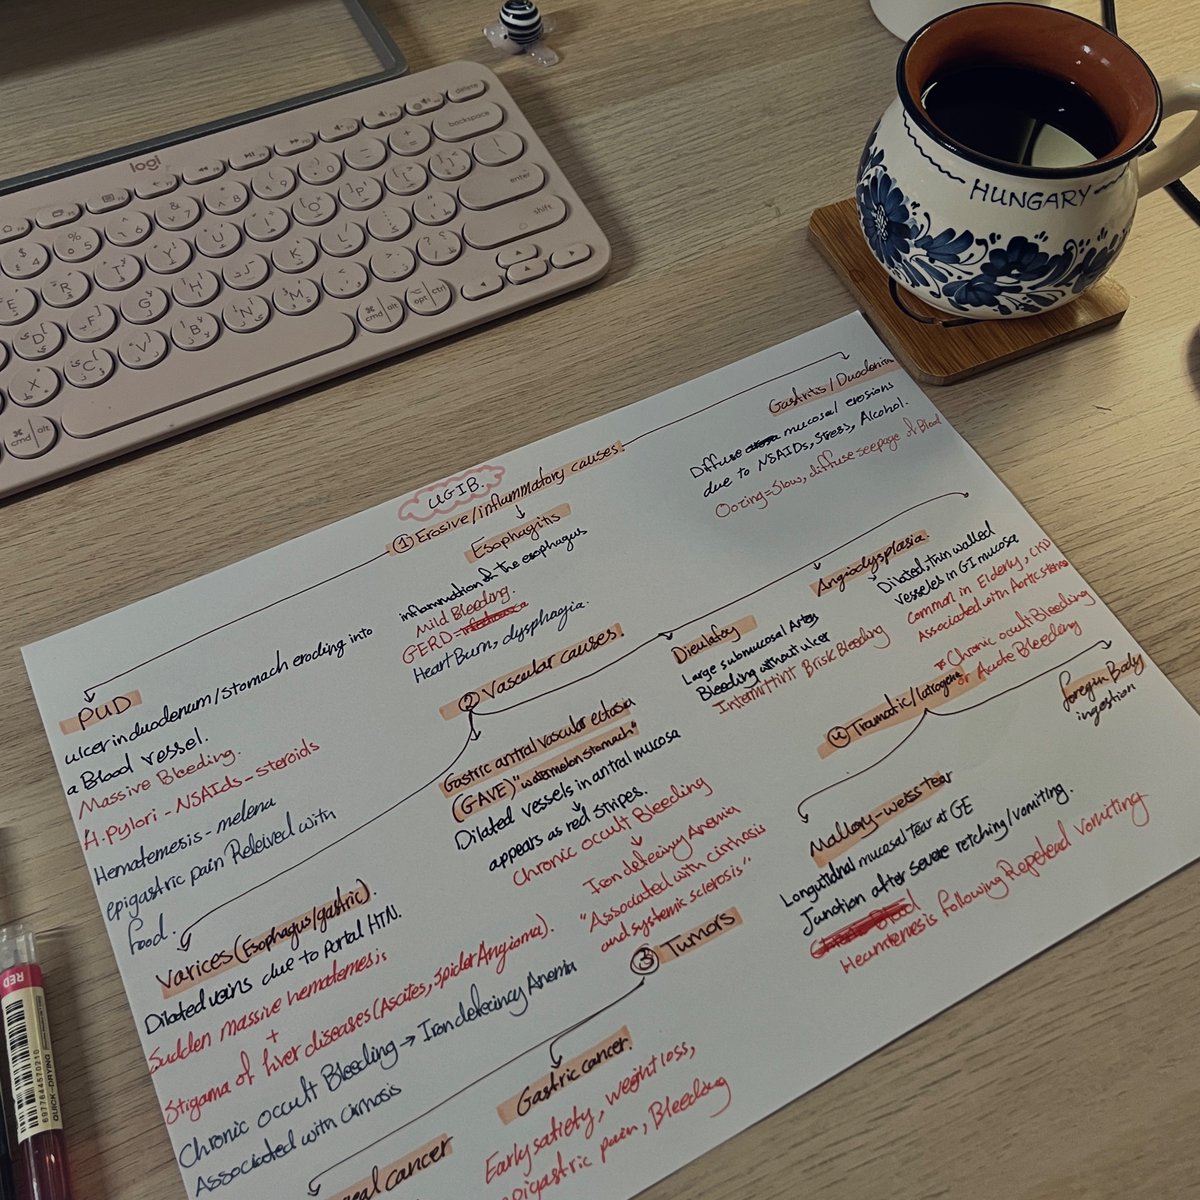 logi
HUNGARY
UGIB.
① Erosive/inflammatory causes.
PUD
ulcer in duodenum/stomach eroding into
a Blood vessel.
Massive Bleeding.
H.pylori - NSAIDs - steroids
Hematemesis - melena
epigastric pain Releived with
food.
Esophagitis
inflammation of the esophagus
Mild Bleeding.
GERD
Heart Burn, dysphagia.
Gastritis / Duodenitis
Diffuse mucosal erosions
due to NSAIDs, Stress, Alcohol.
Oozing = slow, diffuse seepage of Blood
② Vascular causes.
Varices (Esophagus/gastric).
Dilated veins due to portal HTN.
Sudden massive hematemesis
+
Stigama of liver diseases (Ascites, Spider Angioma).
Chronic occult Bleeding → Iron deficincy Anemia
Associated with cirrhosis
Gastric antral vascular ectasia
(GAVE) "watermelon stomach"
Dilated vessels in antral mucosa
appears as red stripes.
Chronic occult Bleeding
Iron deficiency Anemia
"Associated with cirrhosis
and systemic sclerosis"
Dieulafoy
Large submucosal Artery
Bleeding without ulcer
Intermittint Brisk Bleeding
Angiodysplasia.
Dilated, thin walled
vesseles in GI mucosa
common in Elderly, CKD
Associated with Aortic stenosis
* Chronic occult Bleeding
or Acute Bleeding
③ Tumors
Gastric cancer.
Early satiety, weight loss,
epigastric pain, Bleeding
cancer
④ Tramatic/Iatrogenic
Mallory-weiss tear
Longutidnal mucosal tear at GE
Junction after severe retching/vomiting.
Heamtemesis following Repetead vomiting
foregin Body
ingestion
RED
QUICK-DRYING
6977644570210
delete
backspace
enter
shift
cmd
alt
opt
ctrl